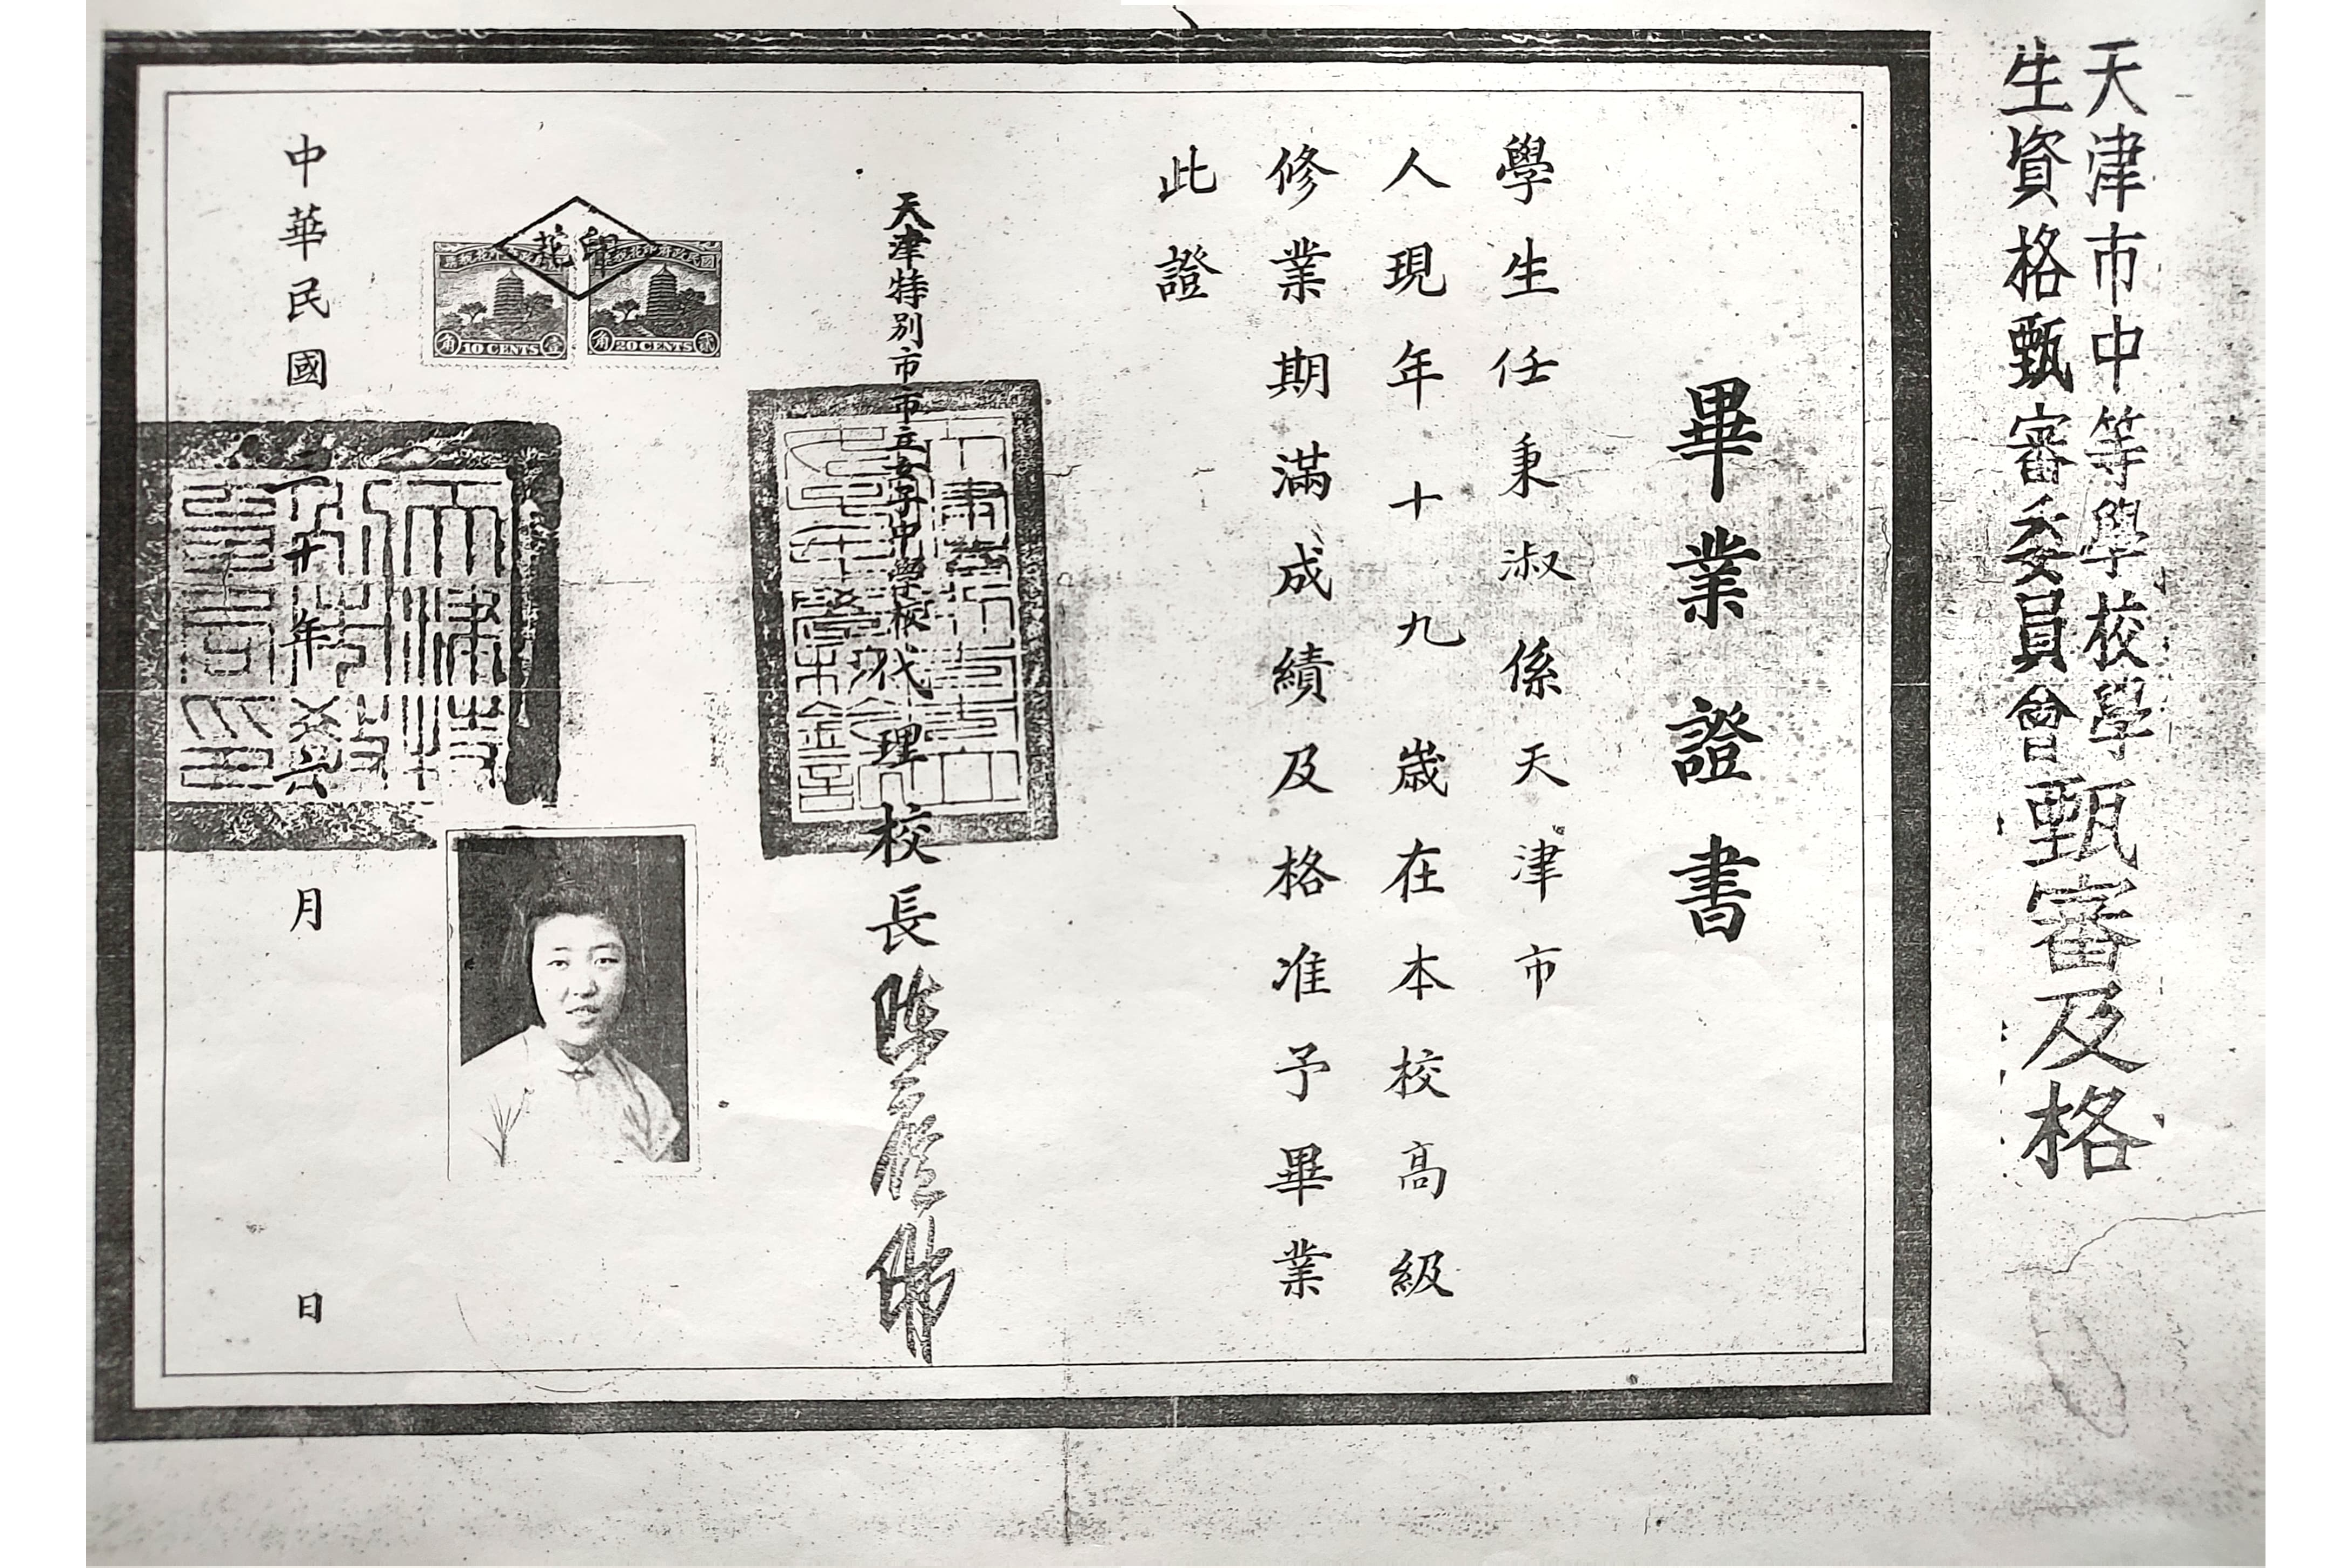 天津市中等學校學
生資格甄審委員會甄審及格
畢業證書
學生任秉淑係天津市
人現年十九歲在本校高級
修業期滿成績及格准予畢業
此證
天津特別市市立女子中學校代理校長
印花
國民政府印花稅票
角20CENTS貳
角10CENTS壹
中華民國三十年 月 日